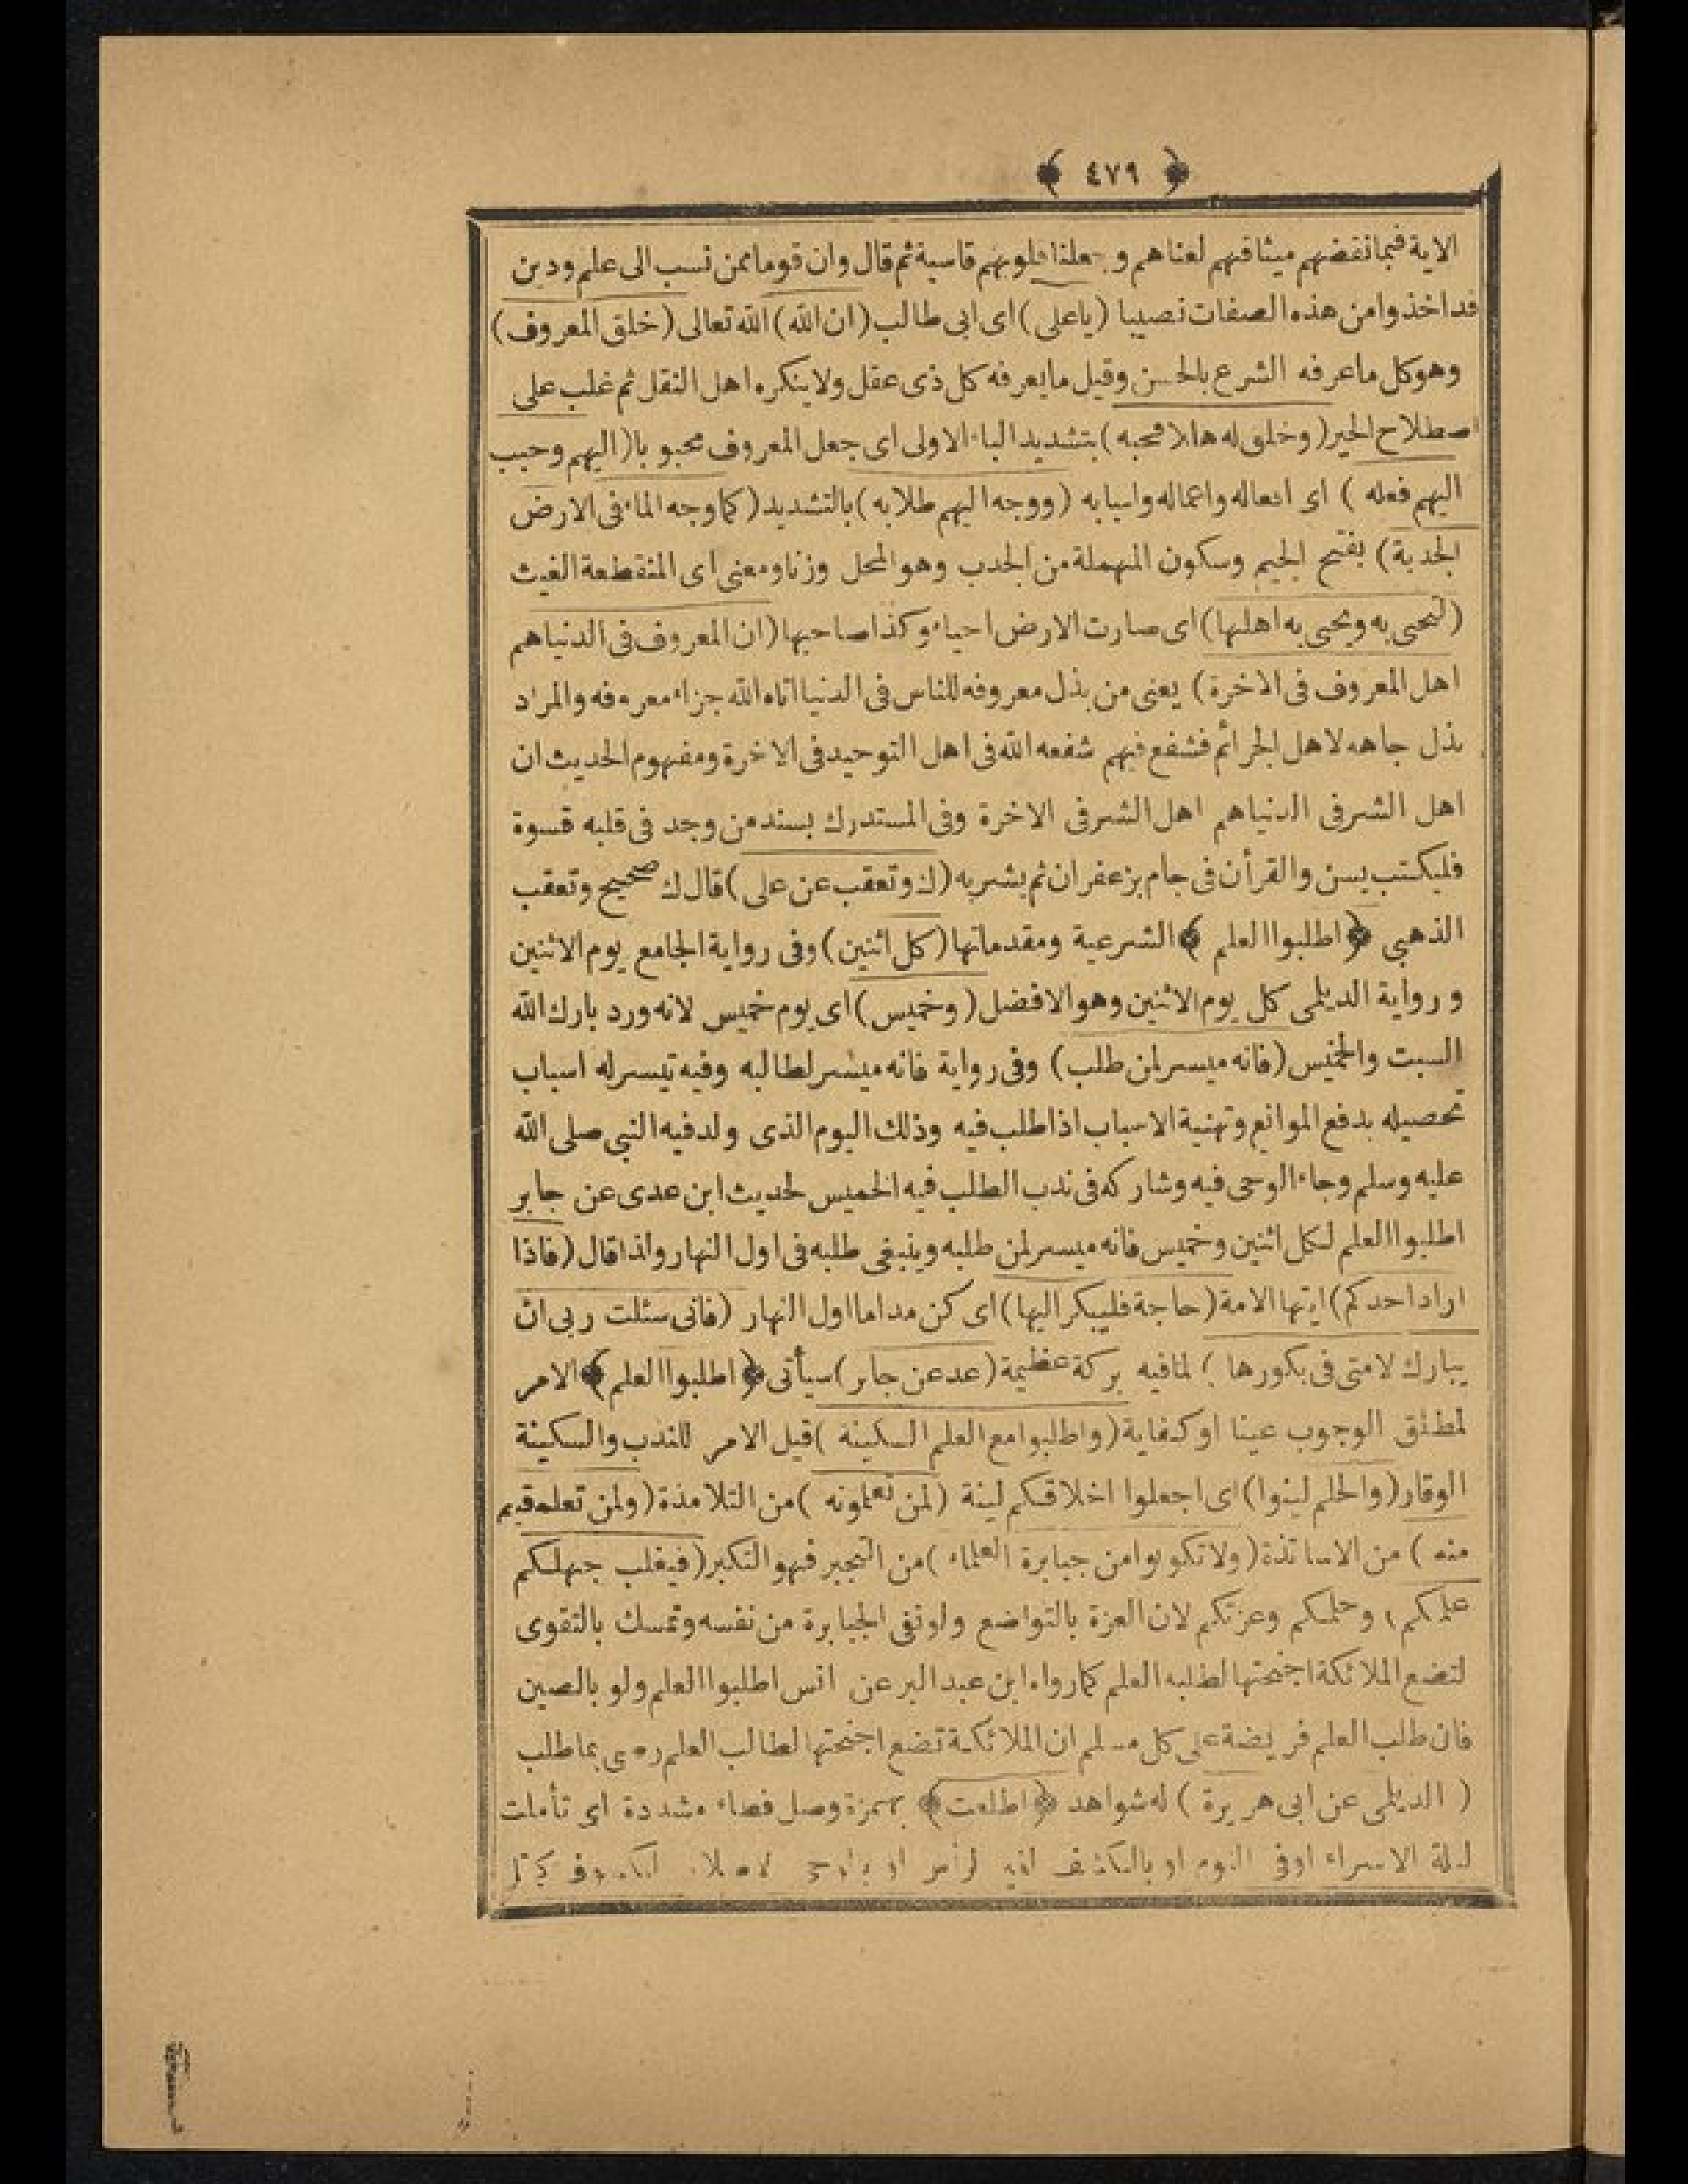 ﴿ ٤٧٩ ﴾
الاية فبما نقضهم ميثاقهم لعناهم وجعلنا قلوبهم قاسية ثم قال وان قوما ممن نسب الى علم ودين
قد اخذوا من هذه الصفات نصيبا (يا على) اى ابى طالب (ان الله) الله تعالى (خلق المعروف)
وهو كل ما عرفه الشرع بالحسن وقيل ما يعرفه كل ذى عقل ولا ينكره اهل النقل ثم غلب على
اصطلاح الخير (وخلق له اهلا فحببه) بتشديد الباء الاولى اى جعل المعروف محبوبا (اليهم وحبب
اليهم فعله) اى افعاله واعماله واسبابه (ووجه اليهم طلابه) بالتشديد (كما وجه الماء فى الارض
الجدبة) بفتح الجيم وسكون المهملة من الجدب وهو المحل وزنا ومعنى اى المنقطعة الغيث
(لتحيى به ويحيى به اهلها) اى صارت الارض احياء وكذا صاحبها (ان المعروف فى الدنيا هم
اهل المعروف فى الاخرة) يعنى من بذل معروفه للناس فى الدنيا اتاه الله جزاء معروفه والمراد
بذل جاهه لاهل الجرائم فشفع فيهم شفعه الله فى اهل التوحيد فى الاخرة ومفهوم الحديث ان
اهل الشر فى الدنيا هم اهل الشر فى الاخرة وفى المستدرك بسنده من وجد فى قلبه قسوة
فليكتب يسن والقرأن فى جام بزعفران ثم يشربه (ك وتعقب عن على) قال ك صحيح وتعقب
الذهبى ﴿اطلبوا العلم﴾ الشرعية ومقدماتها (كل اثنين) وفى رواية الجامع يوم الاثنين
ورواية الديلمى كل يوم الاثنين وهو الافضل (وخميس) اى يوم خميس لانه ورد بارك الله
السبت والخميس (فانه ميسر لمن طلب) وفى رواية فانه ميسر لطالبه وفيه تيسر له اسباب
تحصيله بدفع الموانع وتهئية الاسباب اذا طلب فيه وذلك اليوم الذى ولد فيه النبى صلى الله
عليه وسلم وجاء الوحى فيه وشاركه فى ندب الطلب فيه الخميس لحديث ابن عدى عن جابر
اطلبوا العلم لكل اثنين وخميس فانه ميسر لمن طلبه وينبغى طلبه فى اول النهار ولذا قال (فاذا
اراد احدكم) ايتها الامة (حاجة فليبكر اليها) اى كن مداما اول النهار (فانى سئلت ربى ان
يبارك لامتى فى بكورها) لما فيه بركة عظيمة (عد عن جابر) سيأتى ﴿اطلبوا العلم﴾ الامر
لمطلق الوجوب عينا او كفاية (واطلبوا مع العلم السكينة) قيل الامر للندب والسكينة
الوقار (والحلم لينوا) اى اجعلوا اخلاقكم لينة (لمن تعلمونه) من التلامذة (ولمن تعلمتم
منه) من الاساتذة (ولا تكونوا من جبابرة العلماء) من التجبر فهو التكبر (فيغلب جهلكم
علمكم) وحلمكم وعزتكم لان العزة بالتواضع ولو نفى الجبابرة من نفسه وتمسك بالتقوى
لتضع الملائكة اجنحتها لطلبه العلم كما رواه ابن عبد البر عن انس اطلبوا العلم ولو بالصين
فان طلب العلم فريضة على كل مسلم ان الملائكة تضع اجنحتها لطالب العلم رضى بما طلب
(الديلمى عن ابى هريرة) له شواهد ﴿اطلعت﴾ بهمزة وصل فطاء مشددة اى تأملت
ليلة الاسراء او فى النوم او بالكشف